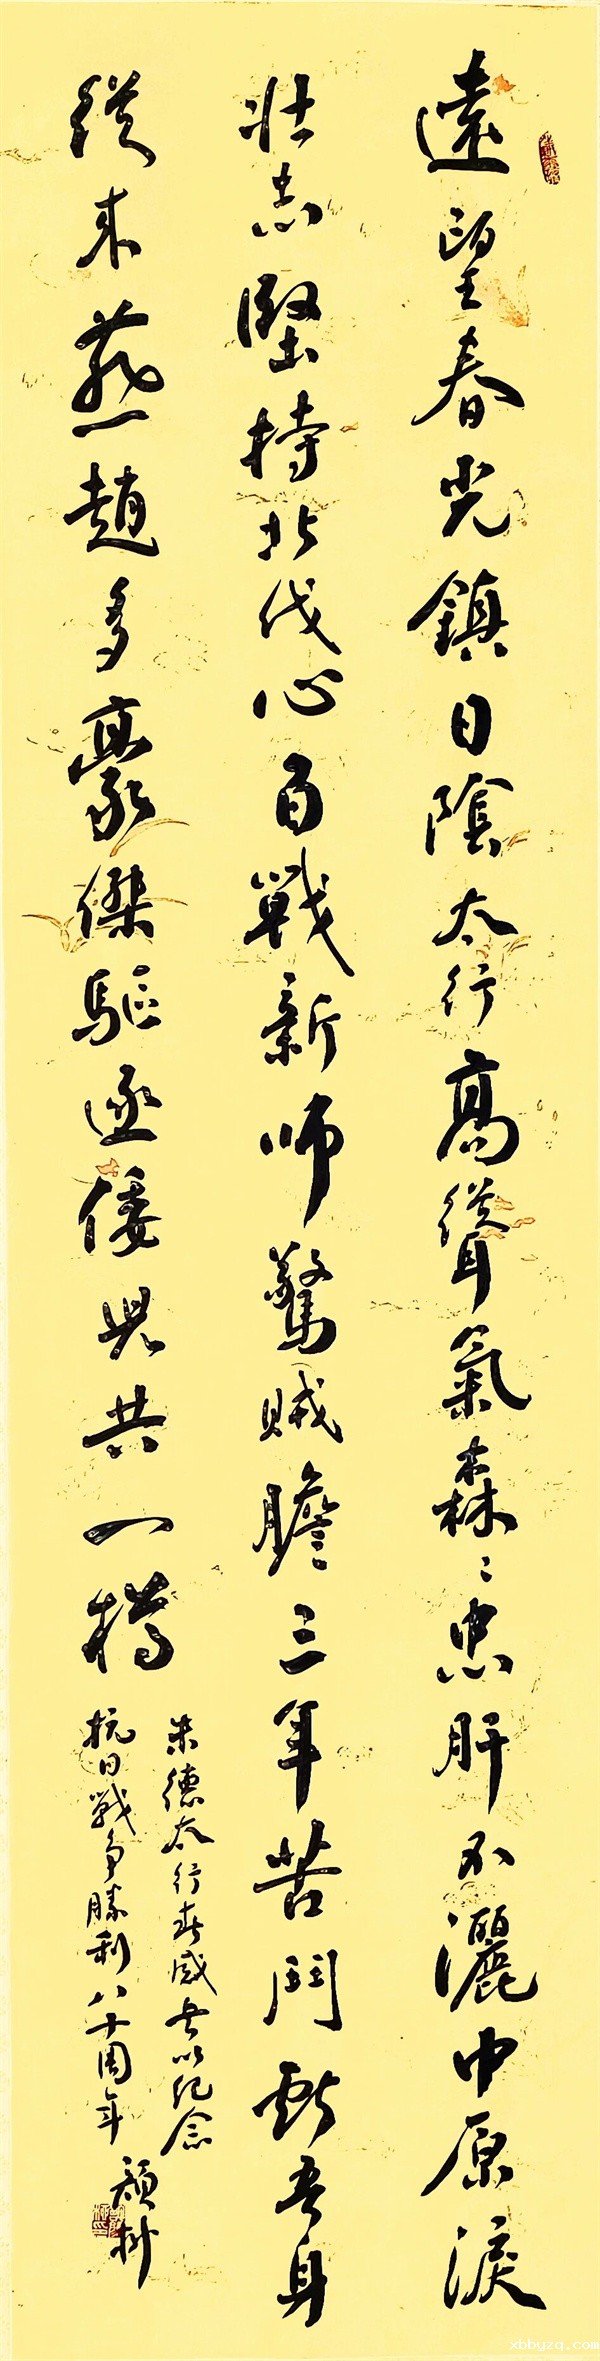 遠望春光鎮日陰太行高聳氣森〻忠肝不灑中原淚
壯志堅持北伐心百戰新師驚賊膽三年苦鬥獻吾身
從來燕趙多豪傑驅逐倭兒共一樽
朱德太行春感書以紀念
抗日戰爭勝利八十周年
xbbyzq.com